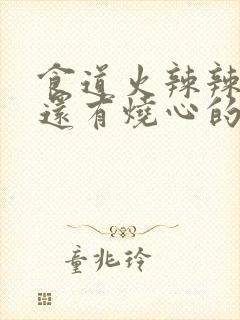 食道火辣辣
還有燒心的
童兆玲